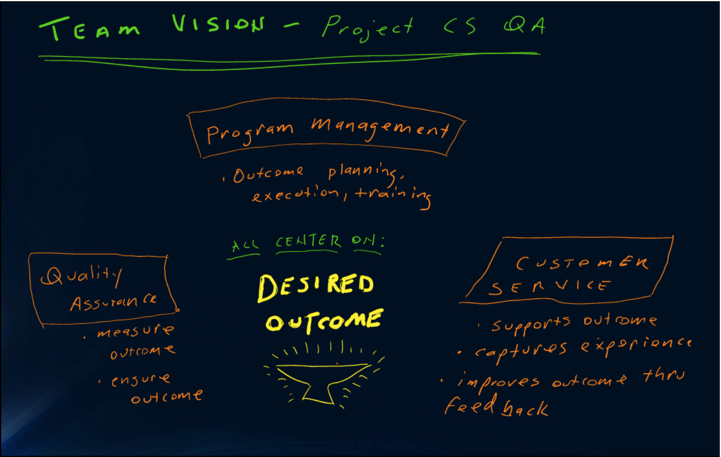 TEAM VISION - Project CS QA
Program Management
• Outcome planning,
execution, training
ALL CENTER ON:
DESIRED
OUTCOME
Quality
Assurance
• measure
outcome
• ensure
outcome
CUSTOMER
SERVICE
• supports outcome
• captures experience
• improves outcome thru
feedback